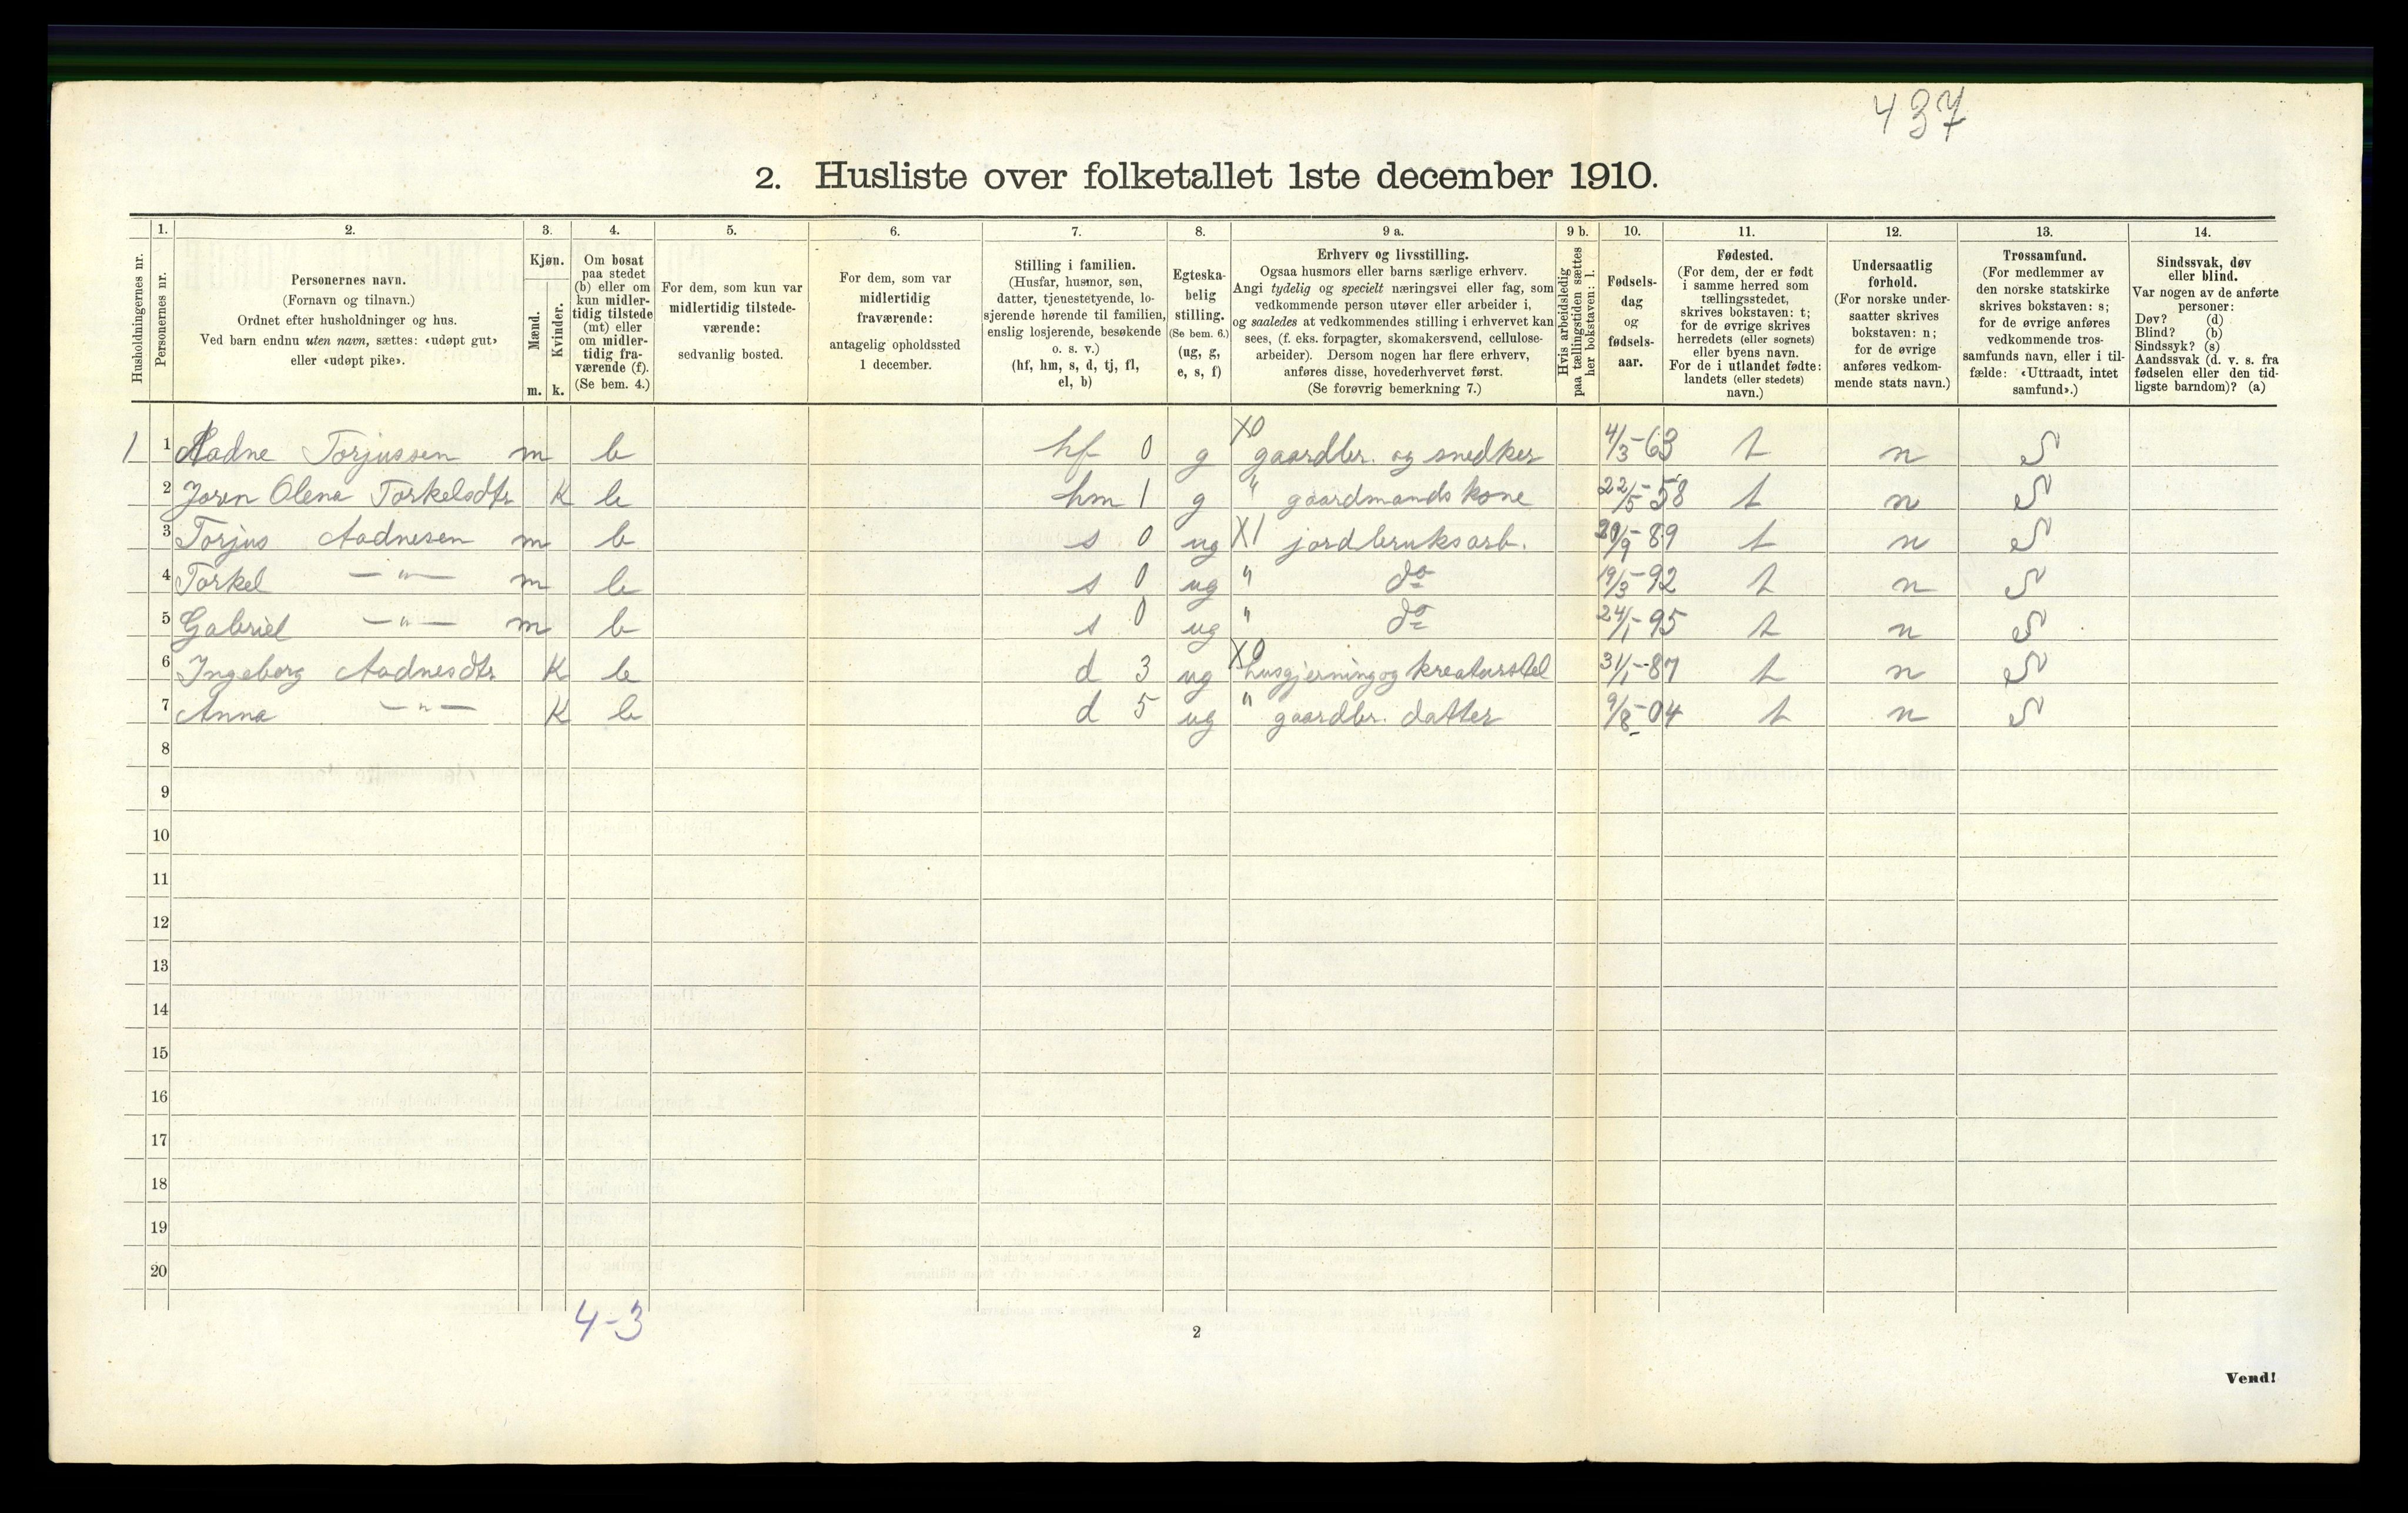 437
2. Husliste over folketallet 1ste december 1910.
Husholdningernes nr.
1.
Personernes nr.
2.
Personernes navn.
(Fornavn og tilnavn.)
Ordnet efter husholdninger og hus.
Ved barn endnu uten navn, sættes: «udøpt gut»
eller «udøpt pike».
3.
Kjøn.
Mænd.
m.
Kvinder.
k.
4.
Om bosat
paa stedet
(b) eller om
kun midler-
tidig tilstede
(mt) eller
om midler-
tidig fra-
værende (f).
(Se bem. 4.)
5.
For dem, som kun var
midlertidig tilstede-
værende:
sedvanlig bosted.
6.
For dem, som var
midlertidig
fraværende:
antagelig opholdssted
1 december.
7.
Stilling i familien.
(Husfar, husmor, søn,
datter, tjenestetyende, lo-
sjerende hørende til familien,
enslig losjerende, besøkende
o. s. v.)
(hf, hm, s, d, tj, fl,
el, b)
8.
Egteska-
belig
stilling.
(Se bem. 6.)
(ug, g,
e, s, f)
9 a.
Erhverv og livsstilling.
Ogsaa husmors eller barns særlige erhverv.
Angi tydelig og specielt næringsvei eller fag, som
vedkommende person utøver eller arbeider i,
og saaledes at vedkommendes stilling i erhvervet kan
sees, (f. eks. forpagter, skomakersvend, cellulose-
arbeider). Dersom nogen har flere erhverv,
anføres disse, hovederhvervet først.
(Se forøvrig bemerkning 7.)
9 b.
Hvis arbeidsledig
paa tællingstiden sættes
her bokstaven: l.
10.
Fødsels-
dag
og
fødsels-
aar.
11.
Fødested.
(For dem, der er født
i samme herred som
tællingsstedet,
skrives bokstaven: t;
for de øvrige skrives
herredets (eller sognets)
eller byens navn.
For de i utlandet fødte:
landets (eller stedets)
navn.)
12.
Undersaatlig
forhold.
(For norske under-
saatter skrives
bokstaven: n;
for de øvrige
anføres vedkom-
mende stats navn.)
13.
Trossamfund.
(For medlemmer av
den norske statskirke
skrives bokstaven: s;
for de øvrige anføres
vedkommende tros-
samfunds navn, eller i til-
fælde: «Uttraadt, intet
samfund».)
14.
Sindssvak, døv
eller blind.
Var nogen av de anførte
personer:
Døv? (d)
Blind? (b)
Sindssyk? (s)
Aandssvak (d. v. s. fra
fødselen eller den tid-
ligste barndom)? (a)
1 1 Aadne Torjussen m b hf 0 g X0 gaardbr. og snedker 4/3-63 t n S
2 Joren Olena Torkelsdtr K b hm 1 g " gaardmands kone 22/5-58 t n S
3 Torjus Aadnesen m b s 0 ug X1 jordbruksarb. 20/9-89 t n S
4 Torkel —"— m b s 0 ug " do 19/3-92 t n S
5 Gabriel —"— m b s 0 ug " do 24/1-95 t n S
6 Ingeborg Aadnesdtr K b d 3 ug X0 husgjerning og kreaturstel 31/1-87 t n S
7 Anna —"— K b d 5 ug " gaardbr. datter 9/8-04 t n S
8
9
10
11
12
13
14
15
16
17
18
19
20
4-3
2
Vend!